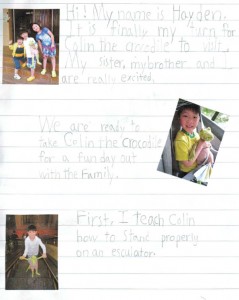 Hi! My name is Hayden.
It is finally my turn for
Colin the crocodile to visit.
My sister, my brother and I
are really excited.
We are ready to
take Colin the Crocodile
for a fun day out
with the Family.
First, I teach Colin
how to stand properly
on an esculator.